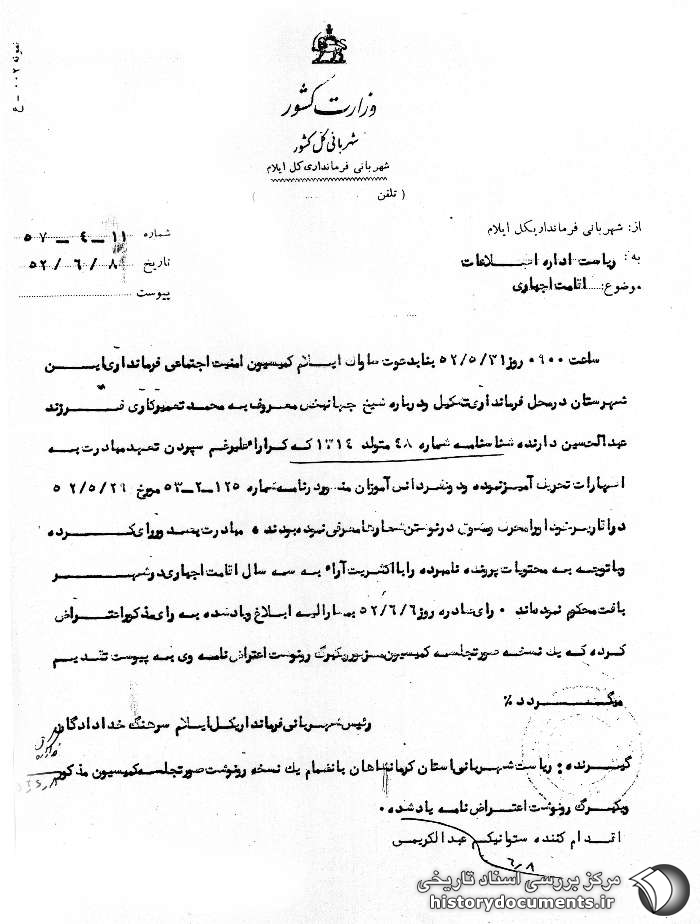 نمونه ۰۰۲ - ع
وزارت کشور
شهربانی کل کشور
شهربانی فرمانداری کل ایلام
( تلفن )
از: شهربانی فرمانداریکل ایلام
به: ریاست اداره اطلاعات
موضوع: اقامت اجباری
شماره ۱۱-۴-۵۷
تاریخ ۵۲/۶/۸
پیوست
ساعت ۰۹۰۰ روز ۵۲/۵/۳۱ بنابدعوت ساواک ایلام کمیسیون امنیت اجتماعی فرمانداری این
شهرستان درمحل فرمانداری تشکیل ودرباره شیخ جهانبخش معروف به محمد تعمیرکاری فرزند
عبدالحسین دارنده شناسنامه شماره ۴۸ متولد ۱۳۱۴ که کرارا علیرغم سپردن تعهد مبادرت به
اظهارات تحریف آمیز نموده ودونفر دانش آموزان منظور در نامه شماره ۱۲۵-۲-۵۳ مورخ ۵۲/۵/۲۹
دراقاریر خود اورا محرک ومشوق درنوشتن شعارها معرفی نموده بودند ۰ مبادرت بصدور رای کرده
وباتوجه به محتویات پرونده نامبرده را با اکثریت آراء به سه سال اقامت اجباری در شهر
بافت محکوم نموده‌اند ۰ رای صادره روز ۵۲/۶/۶ بمشارالیه ابلاغ ویادشده به رای مذکور اعتراض
کرده که یک نسخه صورتجلسه کمیسیون مزبور ویکبرگ رونوشت اعتراض نامه وی به پیوست تقدیم
میگردد ٪
رئیس شهربانی فرمانداریکل ایلام سرهنگ خدادادگان
گیرنده : ریاست شهربانی استان کرمانشاهان بانضمام یک نسخه رونوشت صورتجلسه کمیسیون مذکور
ویکبرگ رونوشت اعتراض نامه یادشده ۰
اقدام کننده ستوانیکم عبدالکریمی
۶/۸
مرکز بررسی اسناد تاریخی
historydocuments.ir